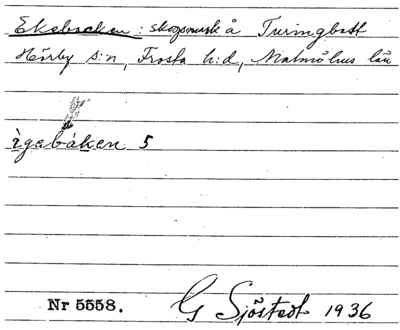 Ekebacken: skogsmark å Turingbatt
Hörby s:n, Frosta h:d, Malmöhus län
ìgabáken 5
Nr 5558. G Sjöstedt 1936